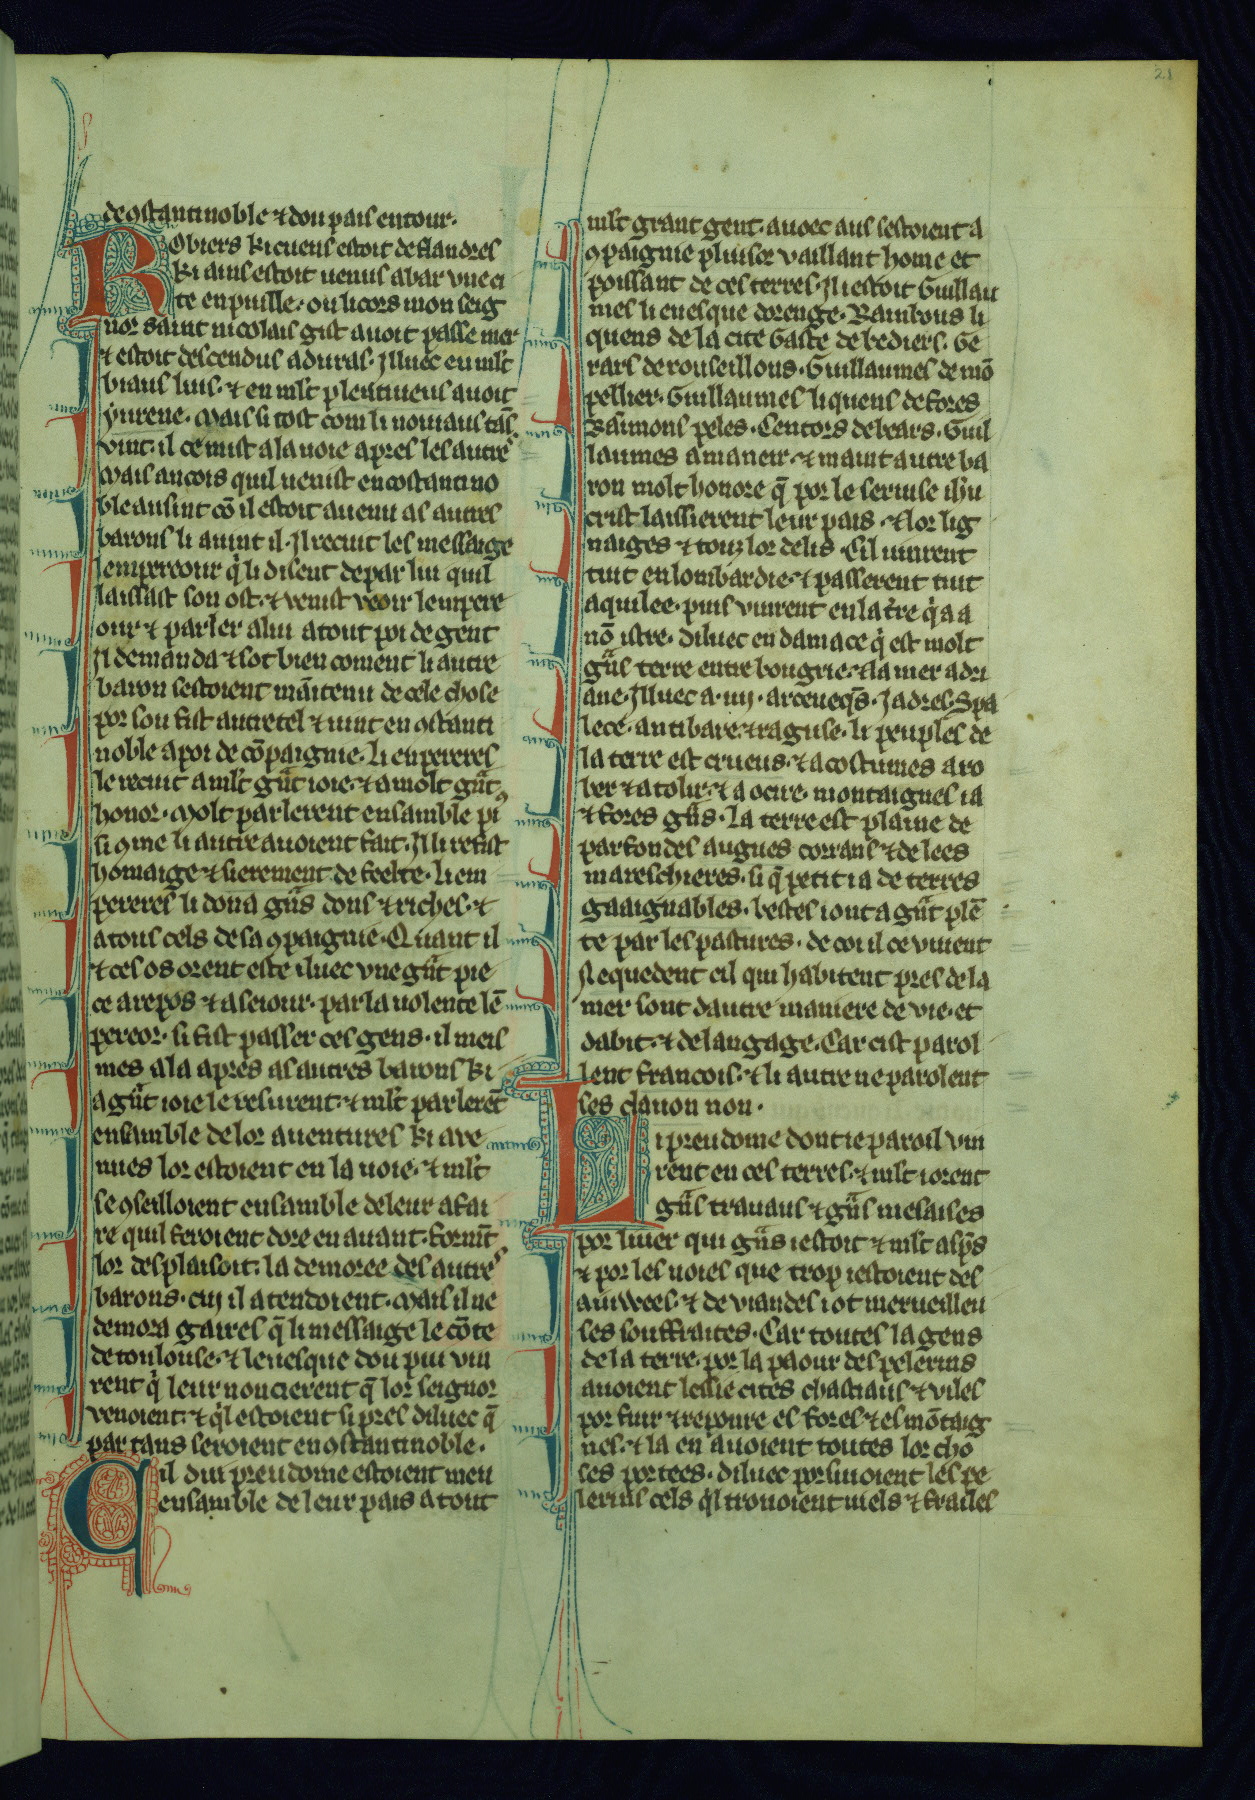 21
de ꝯstantinoble ⁊ dou pais entour.
Robiers ki cuens estoit de flandres
ki ains estoit uenus a bar vne ci
te en puille. ou li cors mon seig
nor saint nicolais gist auoit passe mer
⁊ estoit descendus a duras. Illuec eu ml̃t
biaus luis. ⁊ en ml̃t plentiueus auoit
yurene. Mais si tost com li nouiaus tãs
vint. il ce mist a la uoie apres les autres
Mais ancois quil uenist en costantino
ble ausint cõ il estoit auenu as autres
barons li auint il. Il recuit les messaige
lempereour q̃ li disent de par lui quil
laissast son ost. ⁊ venist veoir lempere
our ⁊ parler a lui a tout poi de gent
Il demanda ⁊ sot bien coment li autre
baron sestoient mãitenu de cele chose
por sou fist autretel ⁊ uint en ꝯstanti
noble a poi de cõpaignie. li enpereres
le recuit a ml̃t gũt ioie. ⁊ a molt gũt
honor. Molt parlerent ensamble ꝑ
si ꝯme li autre auoient fait. Il li refist
homaige ⁊ sierement de feelte. li em
pereres li dona gũs dons ⁊ riches. ⁊
a tous cels de sa ꝯpaignie. Quant il
⁊ ces os orent este iluec vne gũt pie
ce a repos ⁊ a seiour. par la uolente lẽ
pereor. si fist passer ces gens. il meis
mes ala apres as autres barons ki
a gũt ioie le resurent. ⁊ ml̃t parlerẽt
ensamble de lor auentures ki aue
nues lor estoient en la uoie. ⁊ ml̃t
se ꝯseilloient ensamble de leur afai
re quil feroient dore en auant. form̃t
lor desplaisoit. la demoree des autres
barons. cui il atendoient. Mais il ne
demora gaires q̃ li messaige le cõte
de toulouse. ⁊ leuesque dou pui vin
rent q̃ leur noncierent q̃ lor seignor
venoient. ⁊ q̃l estoient si pres diluec q̃
par tans seroient en ꝯstantinoble.
Cil dui preudome estoient meu
ensamble de leur pais a tout
ml̃t grant gent. auoec aus sestoient a
ꝯpaignie pluiser vaillant home et
poissant de ces terres. Il i estoit Guillau
mes li euesque dorenge. Rainbous li
quens de la cite Gaste de bediers. Ge
rars de rouseillons. Guillaumes de mõ
pellier. Guillaumes li quens de fores
Raimons peles. Centors de bears. Guil
laumes amaneir. ⁊ maint autre ba
ron molt honore q̃ por le seruise ihũ
crist laissierent leur pais. ⁊ lor lig
naiges ⁊ touz lor delis. Cil uinrent
tuit en lombardie. ⁊ passerent tuit
aquilee. puis vinrent en la t̃re q̃ a a
nõ istre. diluec en damace q̃ est molt
gũs terre entre hongrie. ⁊ la mer adri
ane. Illuec a .iiij. arceueq̃s. Iadres. Spa
lece. antibare. ⁊ raguse. li peuples de
la terre est crueus. ⁊ a costumes a ro
ber ⁊ a tolir. ⁊ a ocire. montaignes i a
⁊ fores gũs. La terre est plaine de
parfondes augues corrans ⁊ de lees
mareschieres. si q̃ petit i a de terres
gaaignables. bestes i ont a gũt plẽ
te par les pastures. de coi il ce viuent
Nequedent cil qui habitent pres de la
mer sont dautre maniere de vie. et
dabit. ⁊ de langage. Car cist parol
lent francois. ⁊ li autre ne parolent
se sclauon non.
Li preudome dont ie paroil vin
rent en ces terres. ⁊ ml̃t i orent
gũs trauaus ⁊ gũs mesaises
por liuer qui gũs i estoit ⁊ ml̃t asp̃s
⁊ por les uoies que trop i estoient des
auiwees. ⁊ de viandes i ot merueilleu
ses souffraites. Car toutes la gens
de la terre. por la paour des pelerins
auoient lessie cites chastiaus ⁊ viles
por fuir ⁊ repoure es fores ⁊ es mõtaig
nes. ⁊ la en auoient toutes lor cho
ses portees. diluec porsiuoient les pe
lerins cels q̃l trouoient uiels ⁊ frailes